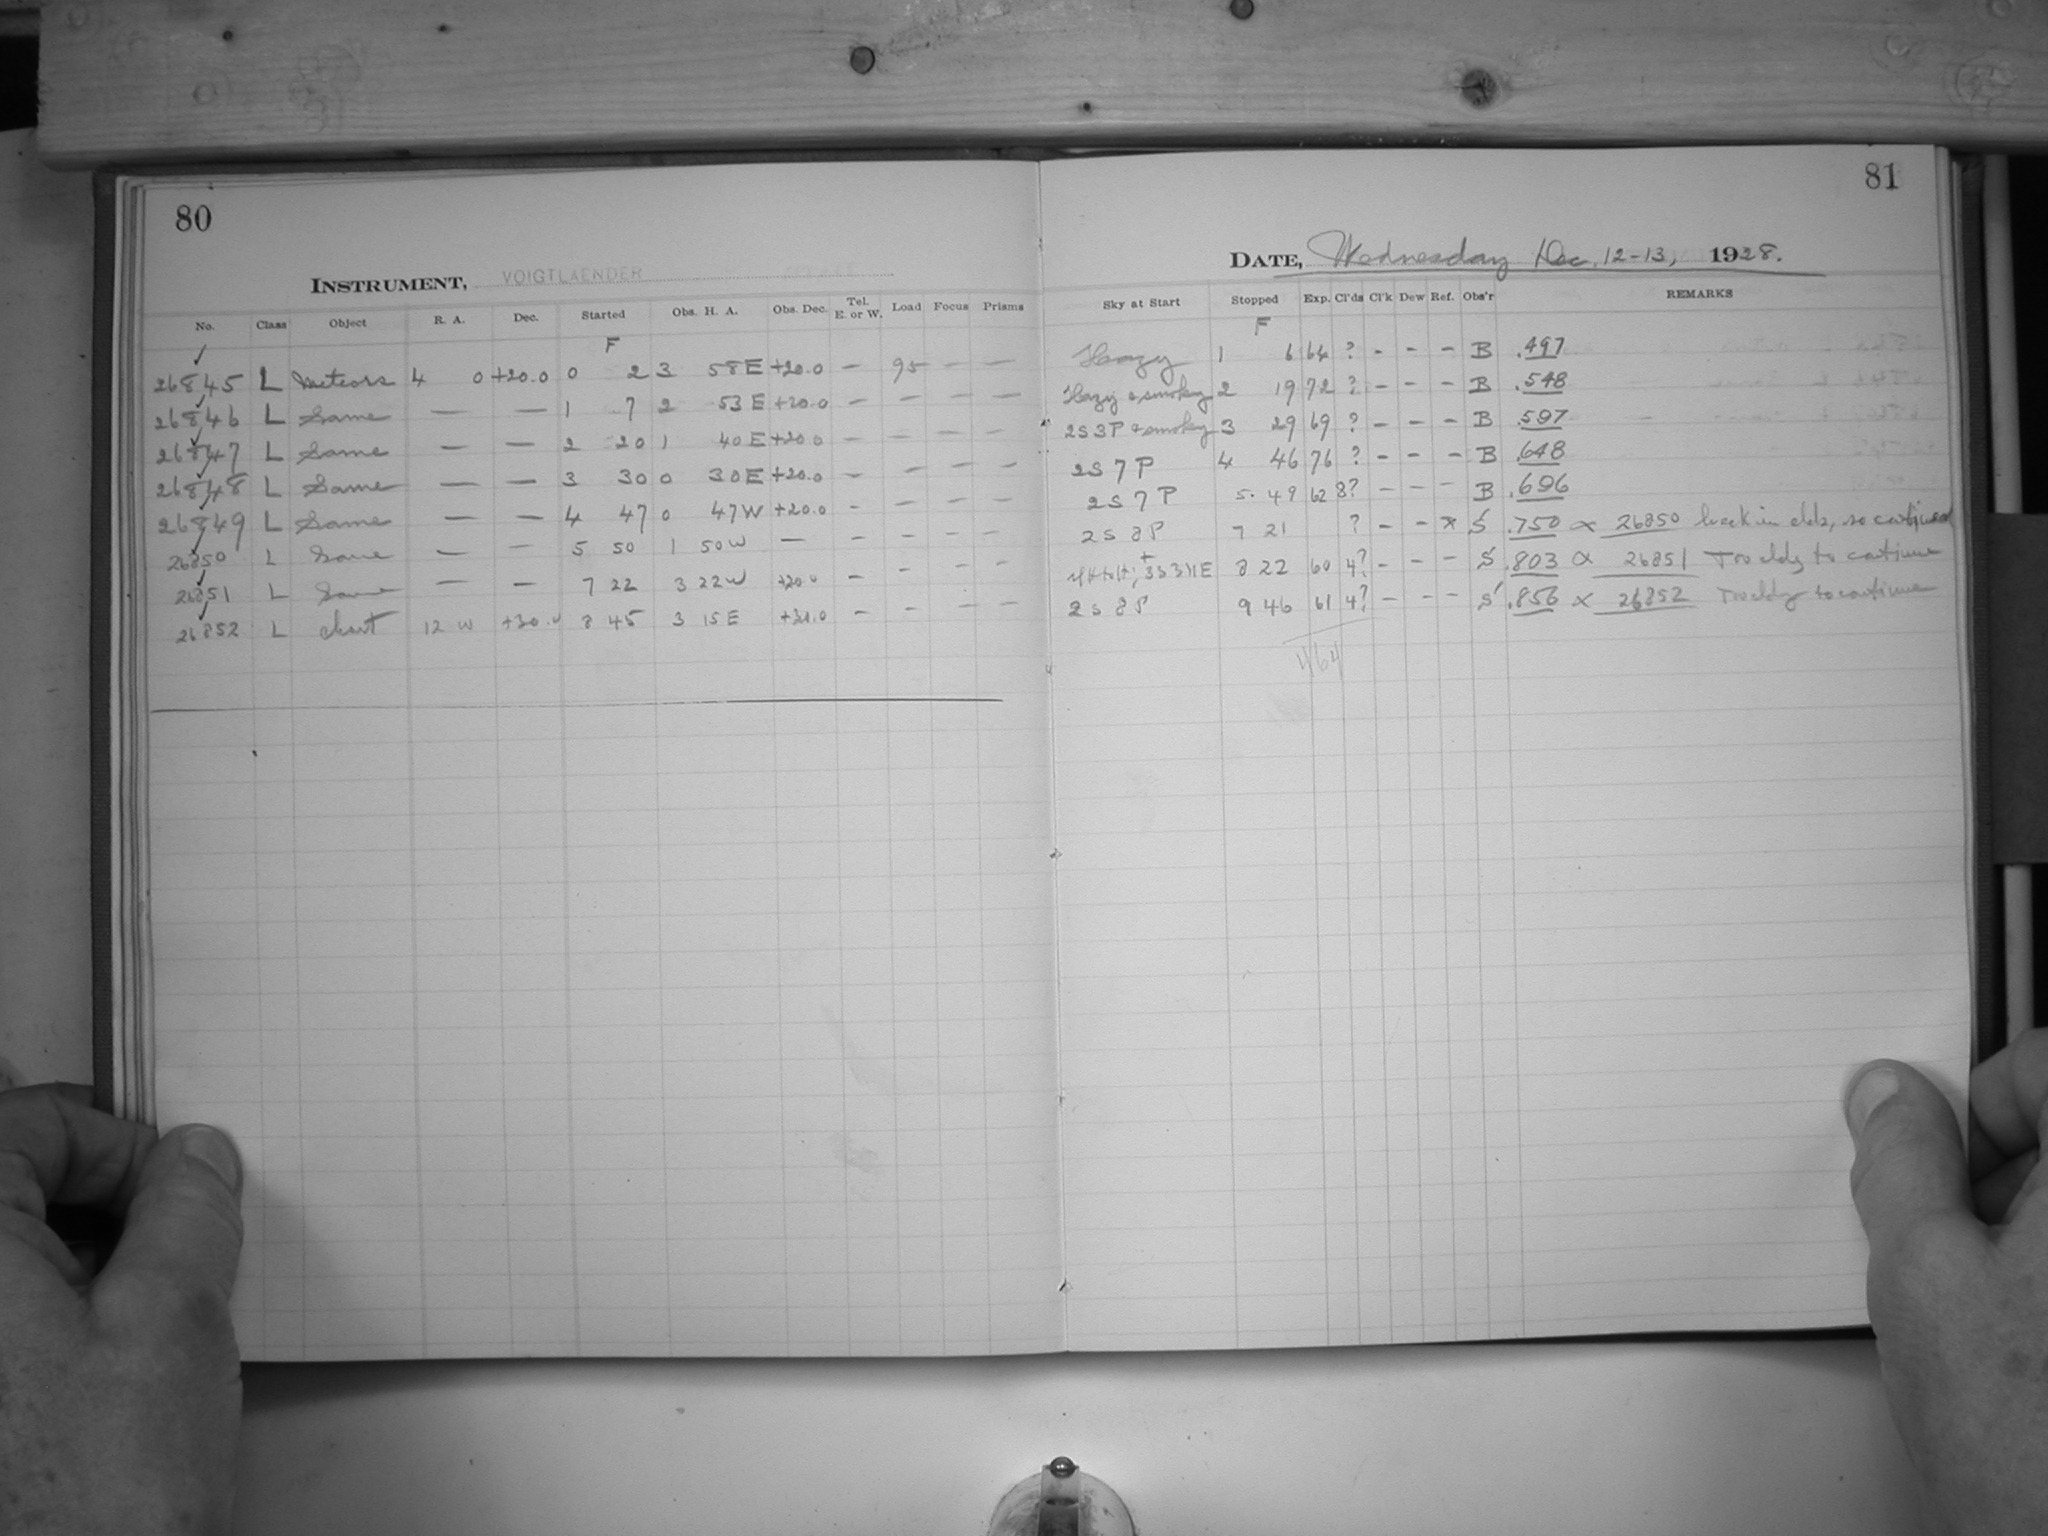 80
INSTRUMENT, VOIGTLAENDER
No. Class Object R. A. Dec. Started Obs. H. A. Obs. Dec. Tel. E. or W. Load Focus Prisms
F
26845 L Meteors 4 0 +20.0 0 2 3 58 E +20.0 — 95 — —
26846 L Same — — 1 7 2 53 E +20.0 — — — —
26847 L Same — — 2 20 1 40 E +20.0 — — — —
26848 L Same — — 3 30 0 30 E +20.0 — — — —
26849 L Same — — 4 47 0 47 W +20.0 — — — —
26850 L Same — — 5 50 1 50 W — — — — —
26851 L Same — — 7 22 3 22 W +20.0 — — — —
26852 L Chart 12 +30.0 8 45 3 15 E — — — —
81
DATE, Wednesday Dec. 12-13, 1928.
Sky at Start Stopped Exp. Cl'ds Cl'k Dew Ref. Obs'r REMARKS
F
Hazy 1 6 64 ? - - - B .497
Hazy & smoky 2 19 72 ? - - - B .548
2S 3P & smoky 3 29 69 ? - - - B .597
2S 7P 4 46 76 ? - - - B .648
2S 7P 5 49 62 8? - - - B .696
2S 8P 7 21 ? - - x S .750 x 26850 back in clds, so continued
3S3HE 8 22 60 4? - - - S .803 x 26851 Too cldy to continue
2S 8P 9 46 61 4? - - - S .856 x 26852 Too cldy to continue
464